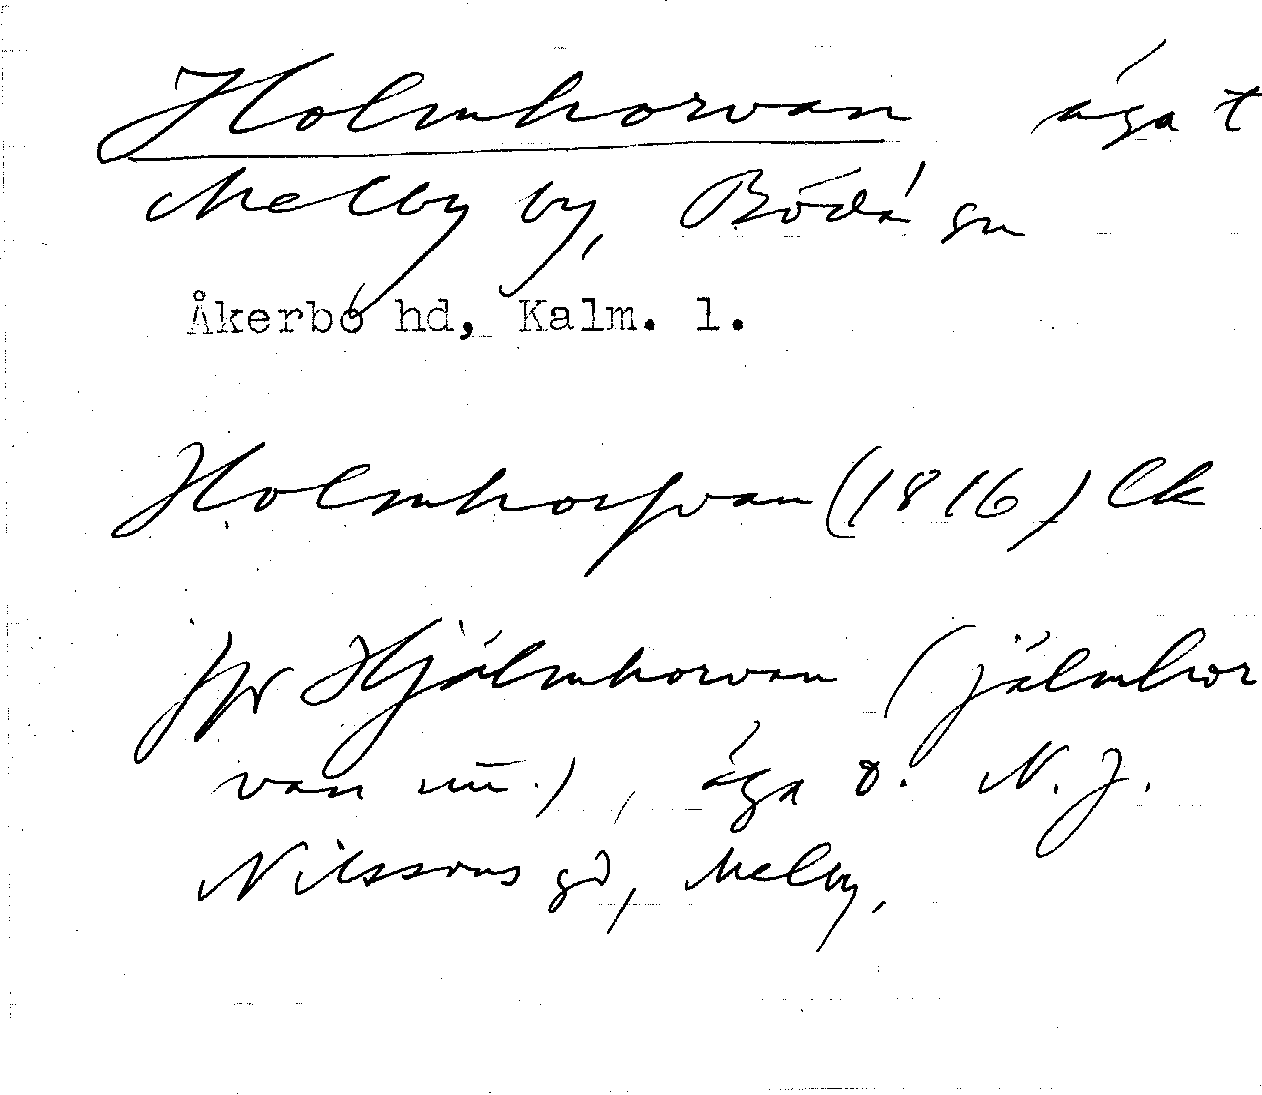 Holmhorvan äga t
Melby by, Böda sn
Åkerbo hd, Kalm. l.
Holmhorfvan (1816) Lk
jfr Hjälmhorvan (jälmhor
van ), äga ö. N. J.
Nilssons gd, Melby.